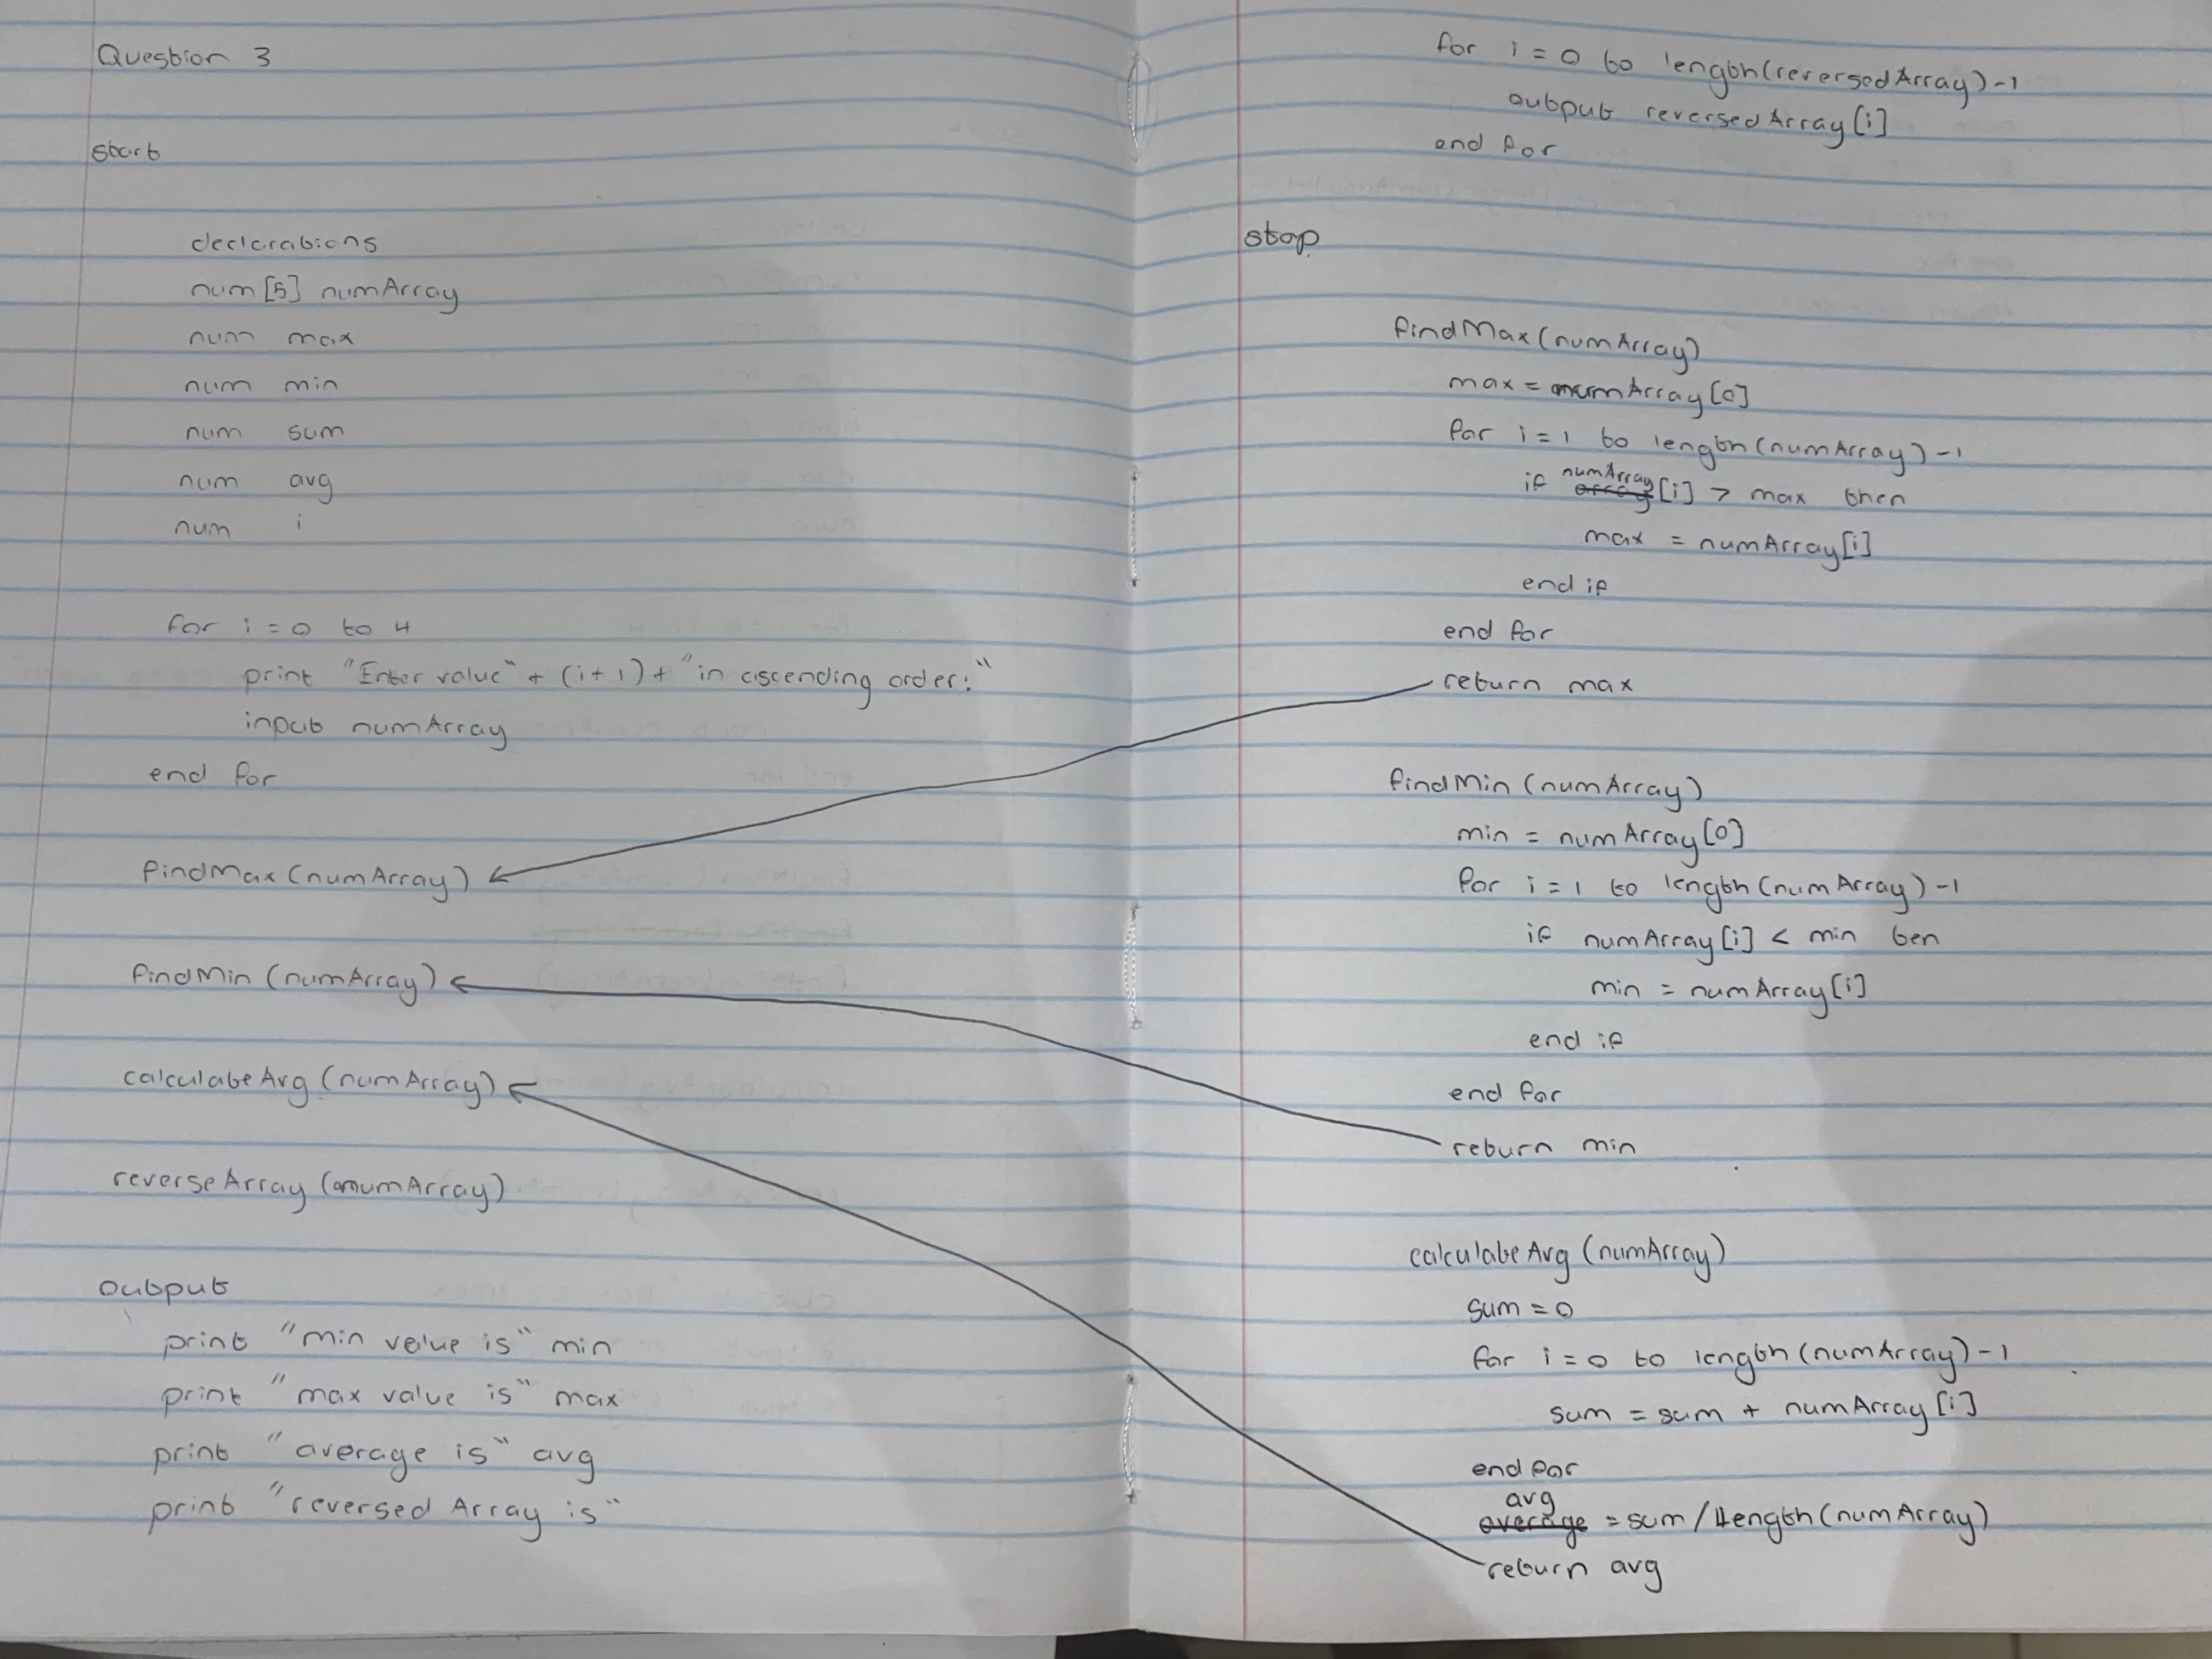 Question 3
start
declarations
num[5] numArray
num max
num min
num sum
num avg
num i
for i = 0 to 4
print "Enter value" + (i+1) + "in ascending order:"
input numArray
end for
findMax(numArray)
findMin(numArray)
calculateAvg(numArray)
reverseArray(numArray)
output
print "min value is" min
print "max value is" max
print "average is" avg
print "reversed Array is"
for i = 0 to length(reversedArray)-1
output reversedArray[i]
end for
stop
findMax(numArray)
max = numArray[0]
for i = 1 to length(numArray)-1
if numArray[i] > max then
max = numArray[i]
end if
end for
return max
findMin(numArray)
min = numArray[0]
for i = 1 to length(numArray)-1
if numArray[i] < min ten
min = numArray[i]
end if
end for
return min
calculateAvg(numArray)
sum = 0
for i = 0 to length(numArray)-1
sum = sum + numArray[i]
end for
avg = sum / length(numArray)
return avg